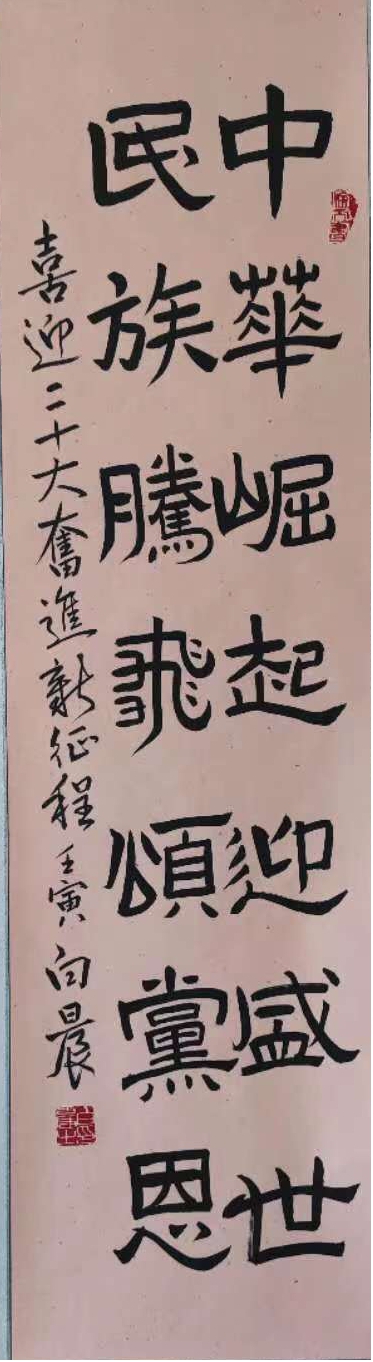 中華崛起迎盛世
民族騰飛頌黨恩
喜迎二十大奮進新征程壬寅向晨